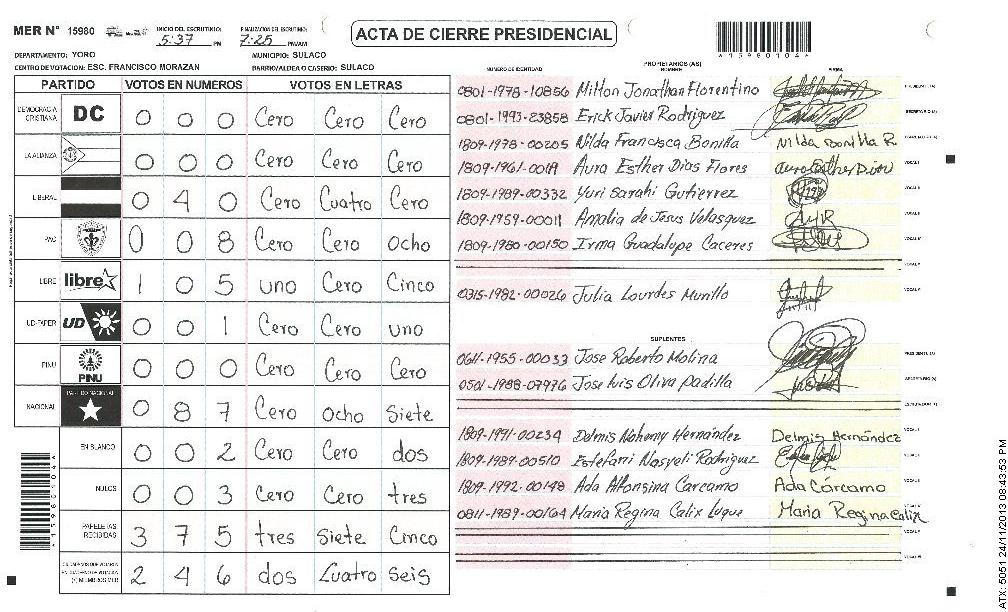 MER N° 15980
INICIO DEL ESCRUTINIO: 5:37 PM
FINALIZACION DEL ESCRUTINIO: 7:25 PM/AM
ACTA DE CIERRE PRESIDENCIAL
*15980104*
DEPARTAMENTO: YORO
MUNICIPIO: SULACO
CENTRO DE VOTACION: ESC. FRANCISCO MORAZAN
BARRIO/ALDEA O CASERIO: SULACO
PARTIDO VOTOS EN NUMEROS VOTOS EN LETRAS
DEMOCRACIA CRISTIANA DC 0 0 0 Cero Cero Cero
LA ALIANZA 0 0 0 Cero Cero Cero
LIBERAL 0 4 0 Cero Cuatro Cero
PAC 0 0 8 Cero Cero ocho
LIBRE libre 1 0 5 uno Cero Cinco
UD-FAPER UD 0 0 1 Cero Cero uno
PINU PINU 0 0 0 Cero Cero Cero
NACIONAL PARTIDO NACIONAL 0 8 7 Cero ocho Siete
EN BLANCO 0 0 2 Cero Cero dos
NULOS 0 0 3 Cero Cero tres
PAPELETAS RECIBIDAS 3 7 5 tres Siete Cinco
2 4 6 dos Cuatro Seis
NUMERO DE IDENTIDAD PROPIETARIOS (AS) NOMBRE FIRMA
0801-1978-10856 Milton Jonathan Florentino PRESIDENTE (A)
0801-1993-23858 Erick Javier Rodriguez SECRETARIO (A)
1809-1978-00205 Nilda Francisca Bonilla Nilda Bonilla R ESCRUTADOR (A)
1809-1961-00119 Aura Esther Dias Flores VOCAL I
1809-1989-00332 Yuri Sarahi Gutierrez VOCAL II
1809-1959-00011 Amalia de Jesus Velasquez VOCAL III
1809-1980-00150 Irma Guadalupe Caceres VOCAL IV
VOCAL V
0315-1982-00026 Julia Lourdes Murillo
SUPLENTES
0611-1955-00033 Jose Roberto Molina PRESIDENTE (A)
0501-1988-07976 Jose Luis Oliva Padilla SECRETARIO (A)
ESCRUTADOR (A)
1809-1991-00234 Delmis Nohemy Hernández Delmis Hernández VOCAL I
1809-1989-00510 Estefani Nasyeli Rodriguez
1809-1992-00148 Ada Alfonsina Carcamo Ada Córcamo
0811-1989-00164 Maria Regina Calix Luque Maria Regina Calix
*15980104*
ATX: 5051 24/11/2013 08:43:53 PM